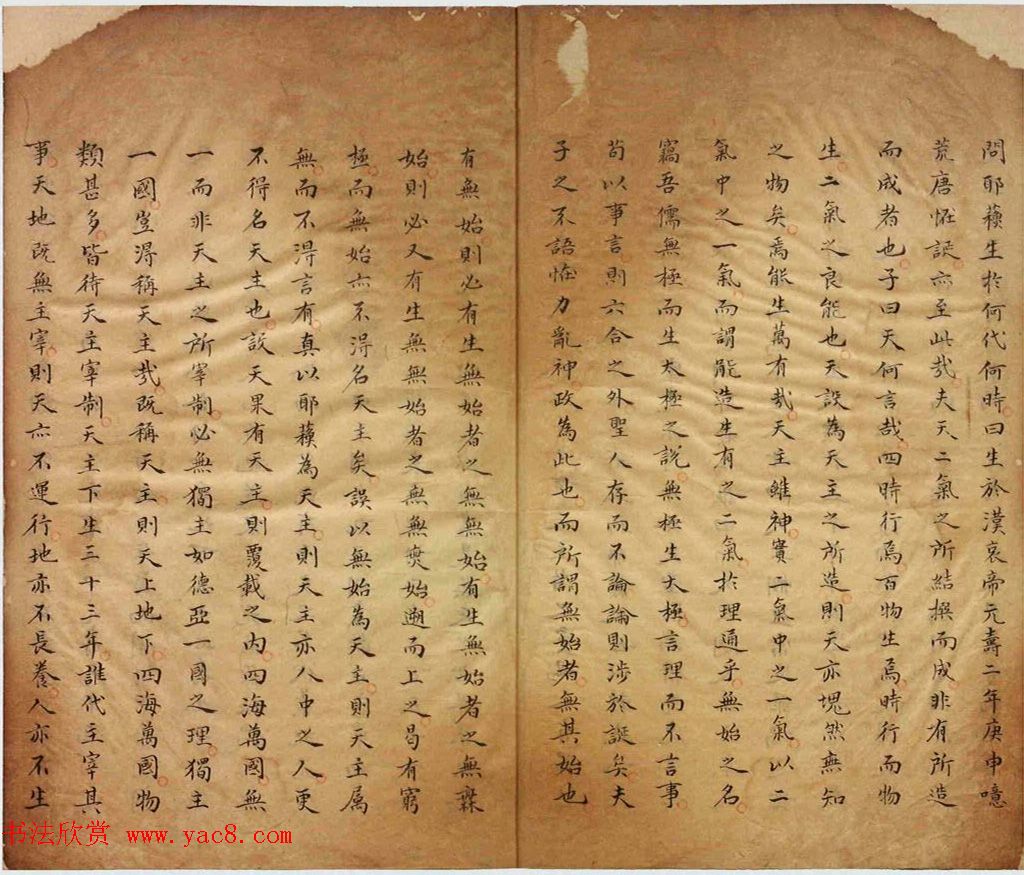 問耶蘓生於何代何時曰生於漢哀帝元壽二年庚申噫
荒唐恠誕亦至此㢤夫天二氣之所結撰而成非有所造
而成者也子曰天何言哉四時行焉百物生焉時行而物
生二氣之良能也天設為天主之所造則天亦塊然無知
之物矣焉能生萬有哉天主雖神實二氣中之一氣以二
氣中之一氣而謂能造生有之二氣於理通乎無始之名
竊吾儒無極而生太極之說無極生太極言理而不言事
苟以事言則六合之外聖人存而不論論則涉於誕矣夫
子之不語恠力亂神政為此也而所謂無始者無其始也
有無始則必有生無始者之無無始有生無始者之無無
始則必又有生無無始者之無無始遡而上之曷有窮
極而無始亦不得名天主矣誤以無始為天主則天主属
無而不得言有真以耶蘓為天主則天主亦人中之人更
不得名天主也設天果有天主則覆載之内四海萬國無
一而非天主之所宰制必無獨主如德亞一國之理獨主
一國豈得稱天主哉既稱天主則天上地下四海萬國物
類甚多皆待天主宰制天主下生三十三年誰代主宰其
事天地既無主宰則天亦不運行地亦不長養人亦不生
书法欣赏 www.yac8.com